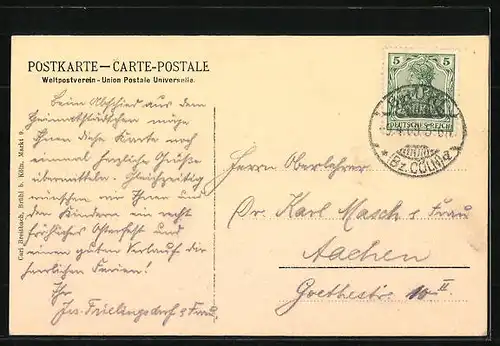 POSTKARTE — CARTE-POSTALE
Weltpostverein - Union Postale Universelle.
Carl Breitbach, Brühl b. Köln, Markt 9.
Beim Abschied aus dem
Heimatstädtchen möge
Ihnen diese Karte noch
einmal herzliche Grüße
übermitteln. Gleichzeitig
wünschen wir Ihnen und
den Kindern ein recht
fröhliches Osterfest und
einen guten Verlauf der
herrlichen Ferien!
Ihr
Jos. Frielingsdorf & Frau.
5 5
DEUTSCHES REICH
BRÜHL
(Bz. CÖLN)
Herrn Oberlehrer
Dr. Karl Masch & Frau
Aachen
Goethestr. 10 II